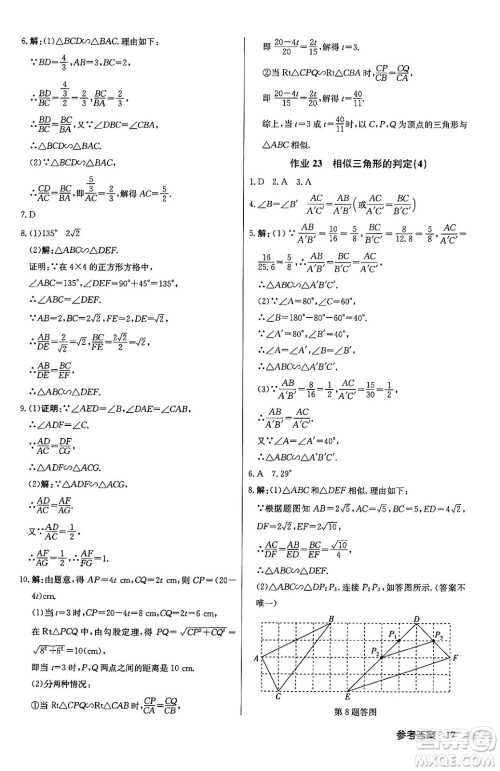 6.解:(1)△BCD∽△ABC.理由如下:
∵BD=4/3,AB=3,BC=2,
∴BD/BC=(4/3)/2=2/3,BC/BA=2/3,
∴BD/BC=BC/BA,又∵∠B=∠B,
∴△BCD∽△ABC.
(2)∵△BCD∽△ABC,
∴CD/AC=BC/BA,即(5/3)/AC=2/3,解得AC=5/2.
7.D
8.(1)135° 2√2
(2)解:△ABC∽△DEF.
证明:∵在4×4的正方形方格中,
∠ABC=135°,∠DEF=90°+45°=135°,
∴∠ABC=∠DEF.
∵AB=2,BC=2√2,FE=2,DE=√2,
∴AB/DE=2/√2=√2,BC/FE=2√2/2=√2,
∴AB/DE=BC/EF,
∴△ABC∽△DEF.
9.(1)证明:∵∠AED=∠ABC,∠DAE=∠CAB,
∴∠ADF=∠C.
∵AD/AC=DF/CG,
∴△ADF∽△ACG.
(2)解:∵△ADF∽△ACG,∴AD/AC=AF/AG.
又∵AD/AC=1/2,∴AF/AG=1/2,
∴AF/FG=1.
10.解:由题意,得AP=4t cm,CQ=2t cm,CP=(20-
4t)cm.
(1)当t=3时,CP=20-4t=8(cm),CQ=2t=6(cm),
在Rt△PCQ中,由勾股定理,得PQ=√(CP²+CQ²)=
√(8²+6²)=10(cm),
即当t=3时,P,Q两点之间的距离是10 cm.
(2)分两种情况:
①当Rt△CPQ∽Rt△CAB时,CP/CA=CQ/CB,
即(20-4t)/20=2t/15,解得t=3.
②当Rt△CPQ∽Rt△CBA时,CP/CB=CQ/CA,
即(20-4t)/15=2t/20,解得t=40/11.
综上,当t=3或t=40/11时,以C,P,Q为顶点的三角形与
△ABC相似.
作业23 相似三角形的判定(4)
1.D 2.A 3.A
4.∠B=∠B′ AB/A′B′=AC/A′C′(或BC/B′C′=AC/A′C′)
5.解:(1)∵AB/A′B′=10/16=5/8,BC/B′C′=8/12.8=5/8,AC/A′C′=
16/25.6=5/8,∴AB/A′B′=BC/B′C′=AC/A′C′,
∴△ABC∽△A′B′C′.
(2)∵∠A=80°,∠C=60°,
∴∠B=180°-∠A-∠C=40°,
∴∠A=∠A′,∠B=∠B′,
∴△ABC∽△A′B′C′.
(3)∵AB/A′B′=8/16=1/2,AC/A′C′=15/30=1/2,
∴AB/A′B′=AC/A′C′.
又∵∠A=∠A′,
∴△ABC∽△A′B′C′.
6.A 7.29°
8.解:(1)△ABC和△DEF相似.理由如下:
∵根据题图,知AB=2√5,AC=√5,BC=5,
DE=4√2,DF=2√2,EF=2√10,
∴AC/DF=AB/DE=BC/EF=√10/4,
∴△ABC∽△DEF.
(2)如图所示的△DP₂P₅即为所求.(答案不
唯一)
A
B
C
D
E
F
P₂
P₅
第8题答图
参考答案
17